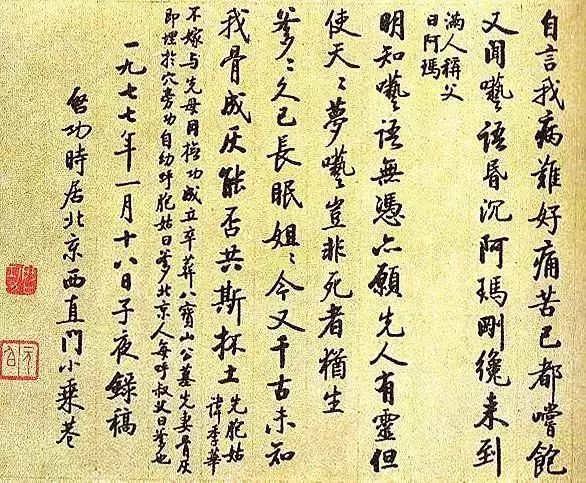 自言我病難好痛苦已都嚐飽
又聞囈語昏沉阿瑪剛纔来到
滿人稱父
曰阿瑪
明知囈語無憑亦願先人有靈但
使天〻夢囈豈非死者猶生
爹〻久已長眠姐〻今又千古未知
我骨成灰能否共斯抔土
先胞姑
諱季華
不嫁与先母同撫功成立卒葬八寶山公墓先妻骨灰
即埋於穴旁功自幼呼胞姑曰爹〻北京人每呼叔父曰爹也
一九七七年一月十八日子夜錄稿
啓功時居北京西直門小乘巷